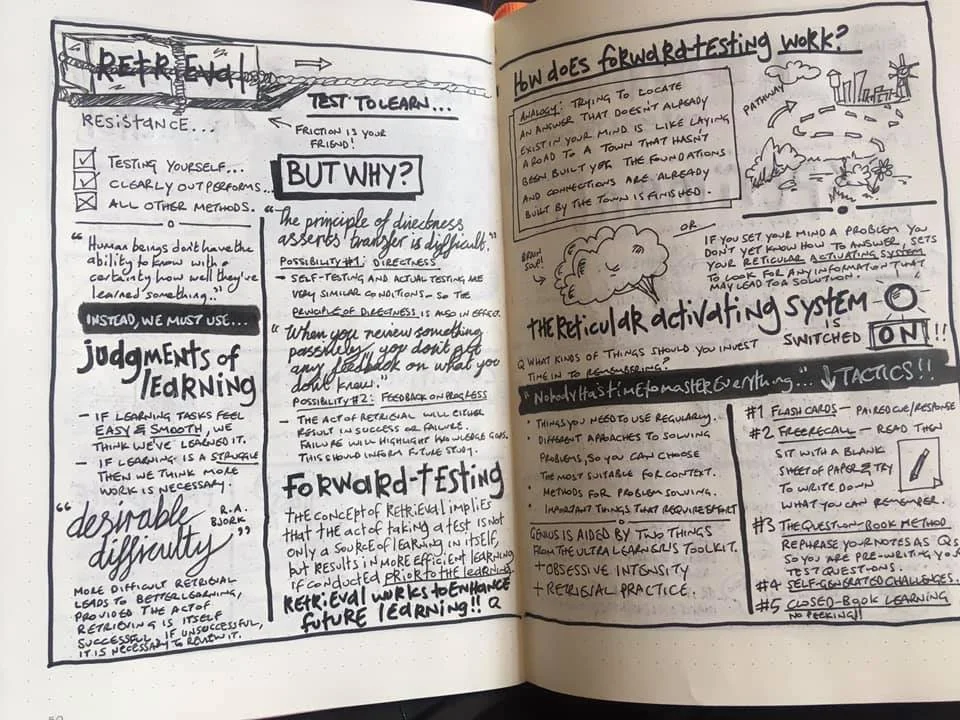 RETRIEVAL
RESISTANCE...
TEST TO LEARN...
FRICTION IS YOUR
FRIEND!
TESTING YOURSELF...
CLEARLY OUTPERFORMS...
ALL OTHER METHODS.
"Human beings don't have the
ability to know with
certainty how well they've
learned something.."
INSTEAD, WE MUST USE...
JUDGMENTS of
LEARNING
- IF LEARNING TASKS FEEL
EASY & SMOOTH, WE
THINK WE'VE LEARNED IT.
- IF LEARNING IS A STRUGGLE
THEN WE THINK MORE
WORK IS NECESSARY.
"desirable
difficulty"
R.A.
BJORK
MORE DIFFICULT RETRIEVAL
LEADS TO BETTER LEARNING,
PROVIDED THE ACT OF
RETRIEVING IS ITSELF
SUCCESSFUL. IF UNSUCCESSFUL,
IT IS NECESSARY TO REVIEW IT.
BUT WHY?
"The principle of directness
asserts transfer is difficult."
POSSIBILITY #1: DIRECTNESS
- SELF-TESTING AND ACTUAL TESTING ARE
VERY SIMILAR CONDITIONS - SO THE
PRINCIPLE OF DIRECTNESS IS ALSO IN EFFECT.
"When you review something
passively, you don't get
any feedback on what you
don't know."
POSSIBILITY #2: FEEDBACK ON PROGRESS
- THE ACT OF RETRIEVAL WILL EITHER
RESULT IN SUCCESS OR FAILURE.
FAILURE WILL HIGHLIGHT KNOWLEDGE GAPS.
THIS SHOULD INFORM FUTURE STUDY.
FORWARD-TESTING
THE CONCEPT OF RETRIEVAL IMPLIES
THAT THE ACT OF TAKING A TEST IS NOT
ONLY A SOURCE OF LEARNING IN ITSELF,
BUT RESULTS IN MORE EFFICIENT LEARNING
IF CONDUCTED PRIOR TO THE LEARNING.
RETRIEVAL WORKS TO ENHANCE
FUTURE LEARNING!!
50
HOW DOES FORWARD-TESTING WORK?
ANALOGY: TRYING TO LOCATE
AN ANSWER THAT DOESN'T ALREADY
EXIST IN YOUR MIND IS LIKE LAYING
A ROAD TO A TOWN THAT HASN'T
BEEN BUILT YET. THE FOUNDATIONS
AND CONNECTIONS ARE ALREADY
BUILT BY THE TOWN IS FINISHED.
PATHWAY
OR
BRAIN
SOUP!
IF YOU SET YOUR MIND A PROBLEM YOU
DON'T YET KNOW HOW TO ANSWER, SETS
YOUR RETICULAR ACTIVATING SYSTEM
TO LOOK FOR ANY INFORMATION THAT
MAY LEAD TO A SOLUTION.
THE RETICULAR ACTIVATING SYSTEM
IS
SWITCHED ON!!
Q WHAT KINDS OF THINGS SHOULD YOU INVEST
TIME IN TO REMEMBERING?
"Nobody has time to master everything..."
• THINGS YOU NEED TO USE REGULARLY.
• DIFFERENT APPROACHES TO SOLVING
PROBLEMS, SO YOU CAN CHOOSE
THE MOST SUITABLE FOR CONTEXT.
• METHODS FOR PROBLEM SOLVING.
• IMPORTANT THINGS THAT REQUIRE EFFORT
GENIUS IS AIDED BY TWO THINGS
FROM THE ULTRALEARNER'S TOOLKIT.
+ OBSESSIVE INTENSITY
+ RETRIEVAL PRACTICE.
TACTICS!!
#1 FLASH CARDS - PAIRED CUE/RESPONSE
#2 FREE RECALL - READ THEN
SIT WITH A BLANK
SHEET OF PAPER & TRY
TO WRITE DOWN
WHAT YOU CAN REMEMBER.
#3 THE QUESTION-BOOK METHOD
REPHRASE YOUR NOTES AS QS
SO YOU ARE PRE-WRITING YOUR
TEST QUESTIONS.
#4 SELF-GENERATED CHALLENGES.
#5 CLOSED-BOOK LEARNING
NO PEEKING!!